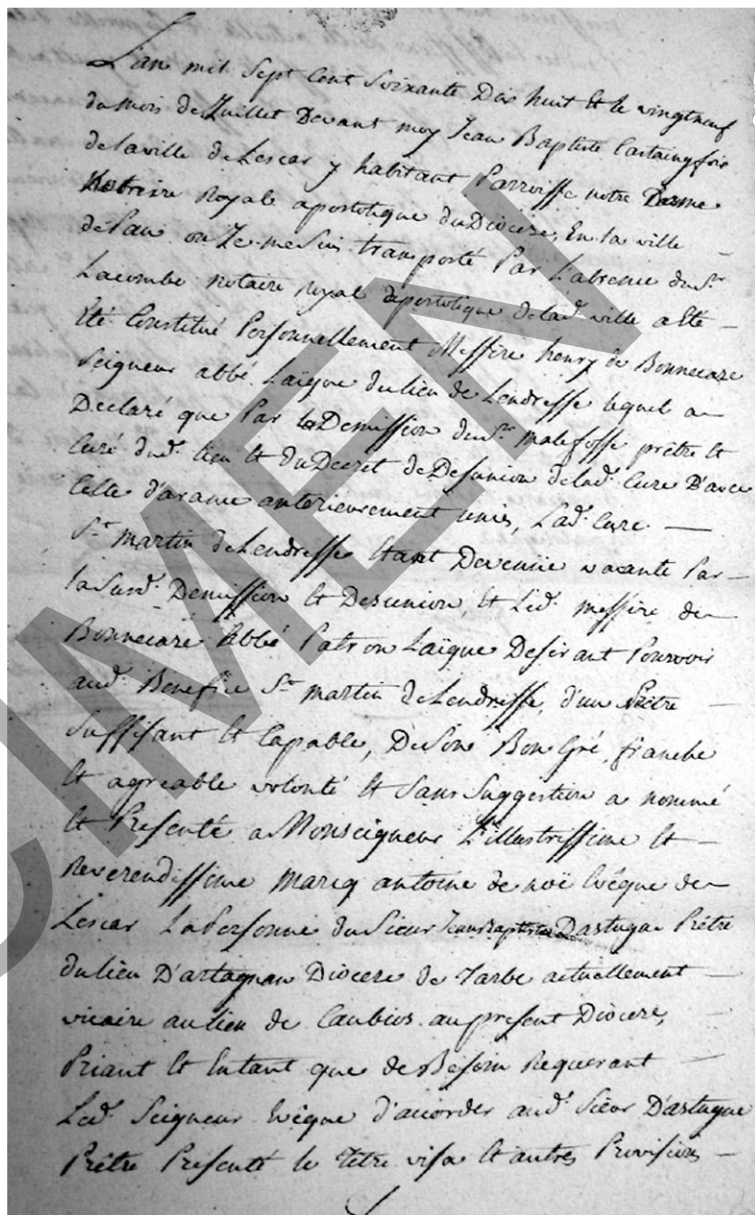 L'an mil sept cent soixante Dix huit et le vingtneuf
du mois de Juillet Devant moy Jean Baptiste Castaingfoix
de la ville de Lescar y habitant Parroisse notre Dame
Notaire Royal apostolique du Dioceze, En la ville
de Pau ou Je me suis transporté Par L'absence du Sr
Lacombe notaire royal apostolique de lad. ville a été
Eté Constitué Personnellement Messire henry de Bonnecaze
Seigneur abbé Laïque du lieu de Lendresse lequel a
Declaré que Par la Demission du Sr malefosse prêtre et
Curé dud. lieu et du Decret de Desunion de lad. Cure D'avec
Celle d'arance anterieurement unie, Lad. Cure
St martin de Lendresse Etant Devenüe vacante Par
la Susd. Demission et Desunion, et Led. messire de
Bonnecaze Abbé Patron Laïque Desirant Pourvoir
aud. Benefice St martin de Lendresse, d'un Prêtre
Suffisant et Capable, De Son Bon Gré, franche
et agreable volonté et Sans Suggestion a nommé
et Presenté a Monseigneur L'illustrissime et
Reverendissime marcq antoine de noé Evêque de
Lescar La Personne du Sieur Jean Baptiste Dastugue Prêtre
du lieu D'artagnan Dioceze de Tarbe actuellement
vicaire au lieu de Caubios au present Dioceze,
Priant et Entant que de Besoin Requerant
Led. Seigneur Evêque d'accorder aud. Sieur Dastugue
Prêtre Presenté le Titre visa et autres Provisions
SPECIMEN